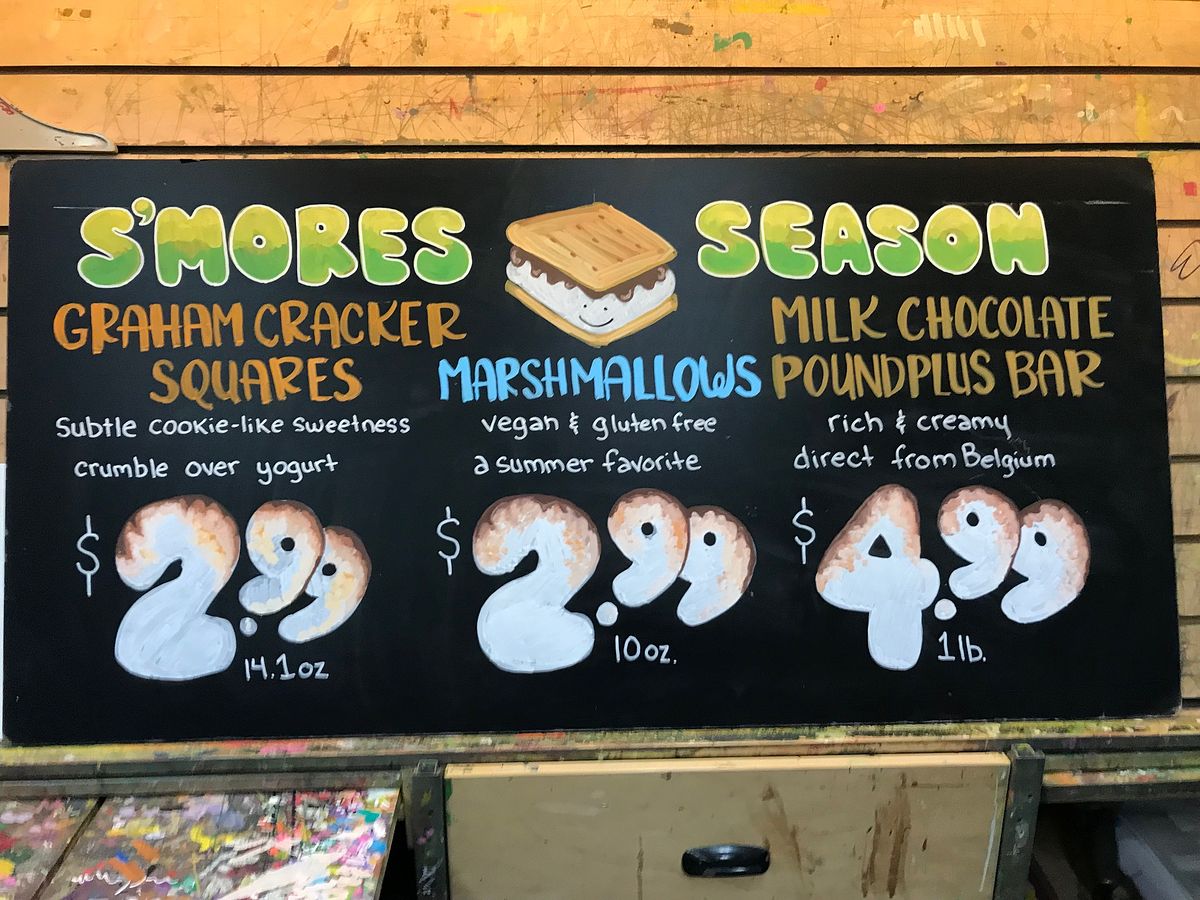 S'MORES SEASON
GRAHAM CRACKER
SQUARES
Subtle cookie-like sweetness
crumble over yogurt
$2.99
14.1oz
MARSHMALLOWS
vegan & gluten free
a summer favorite
$2.99
10oz.
MILK CHOCOLATE
POUNDPLUS BAR
rich & creamy
direct from Belgium
$4.99
1lb.